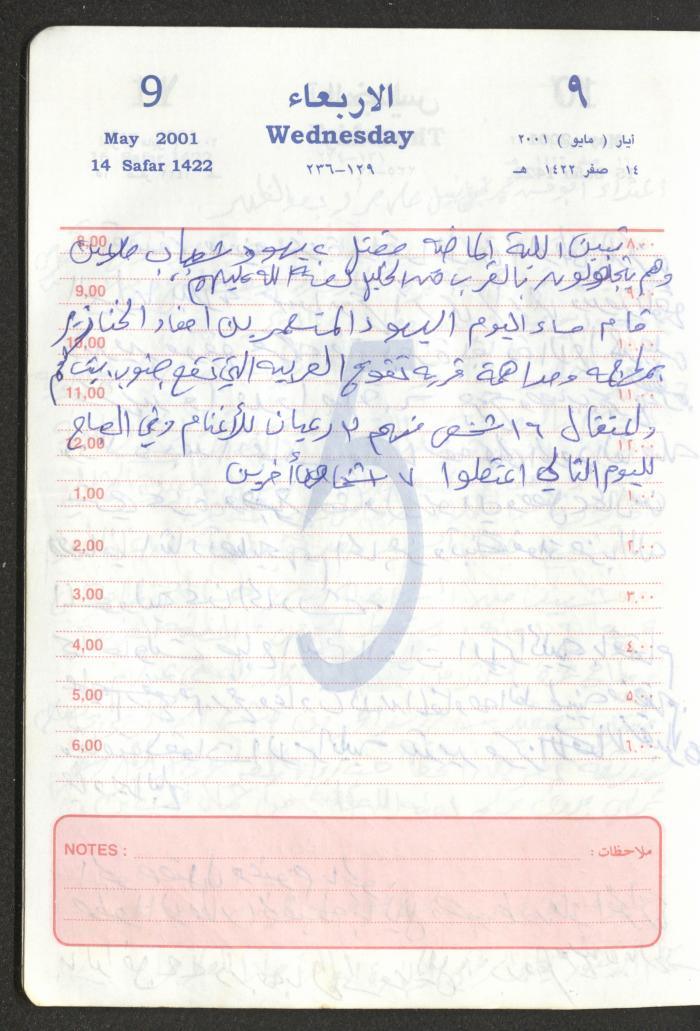 9 الاربعاء ٩
May 2001 Wednesday أيار ( مايو ) ٢٠٠١
14 Safar 1422 ٢٣٦-١٢٩ ١٤ صفر ١٤٢٢ هـ
8,00 ٨,٠٠
تبين الليلة الماضية مقتل ٤ يهود شباب
وهم يتجولون بالقرب من الخليل لعنة الله عليهم
9,00 ٩,٠٠
قام مساء اليوم اليهود المتسعمرين أحفاد الخنازير
10,00 ١٠,٠٠
ومداهمة قرية تقوع العربية التي تقع جنوب بيت لحم
11,00 ١١,٠٠
واعتقال ١٦ شخص منهم ٣ رعيان للأغنام وفي الصباح
12,00 ١٢,٠٠
لليوم التالي اعتقلوا ٧ أشخاص أخرين
1,00 ١,٠٠
2,00 ٢,٠٠
3,00 ٣,٠٠
4,00 ٤,٠٠
5,00 ٥,٠٠
6,00 ٦,٠٠
5
NOTES : ملاحظات :